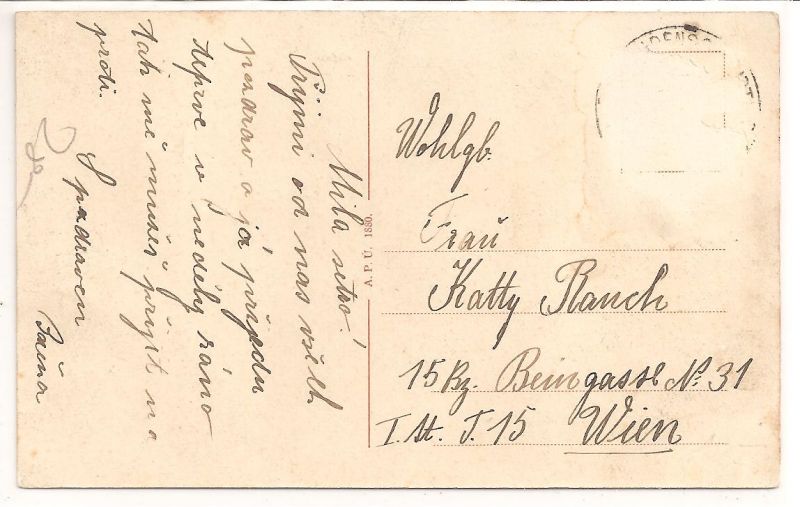 Milá setro!
Přijmi od nas všeh
pozdrav a já přijedu
teprve v neděly ráno
tak mě mužeš přijít na
proti.
S pozdraven
A.P.U. 1880.
Wohlgb.
Frau
Katty Rauch
15 Bz. Beingasse No 31
I. St. T. 15 Wien